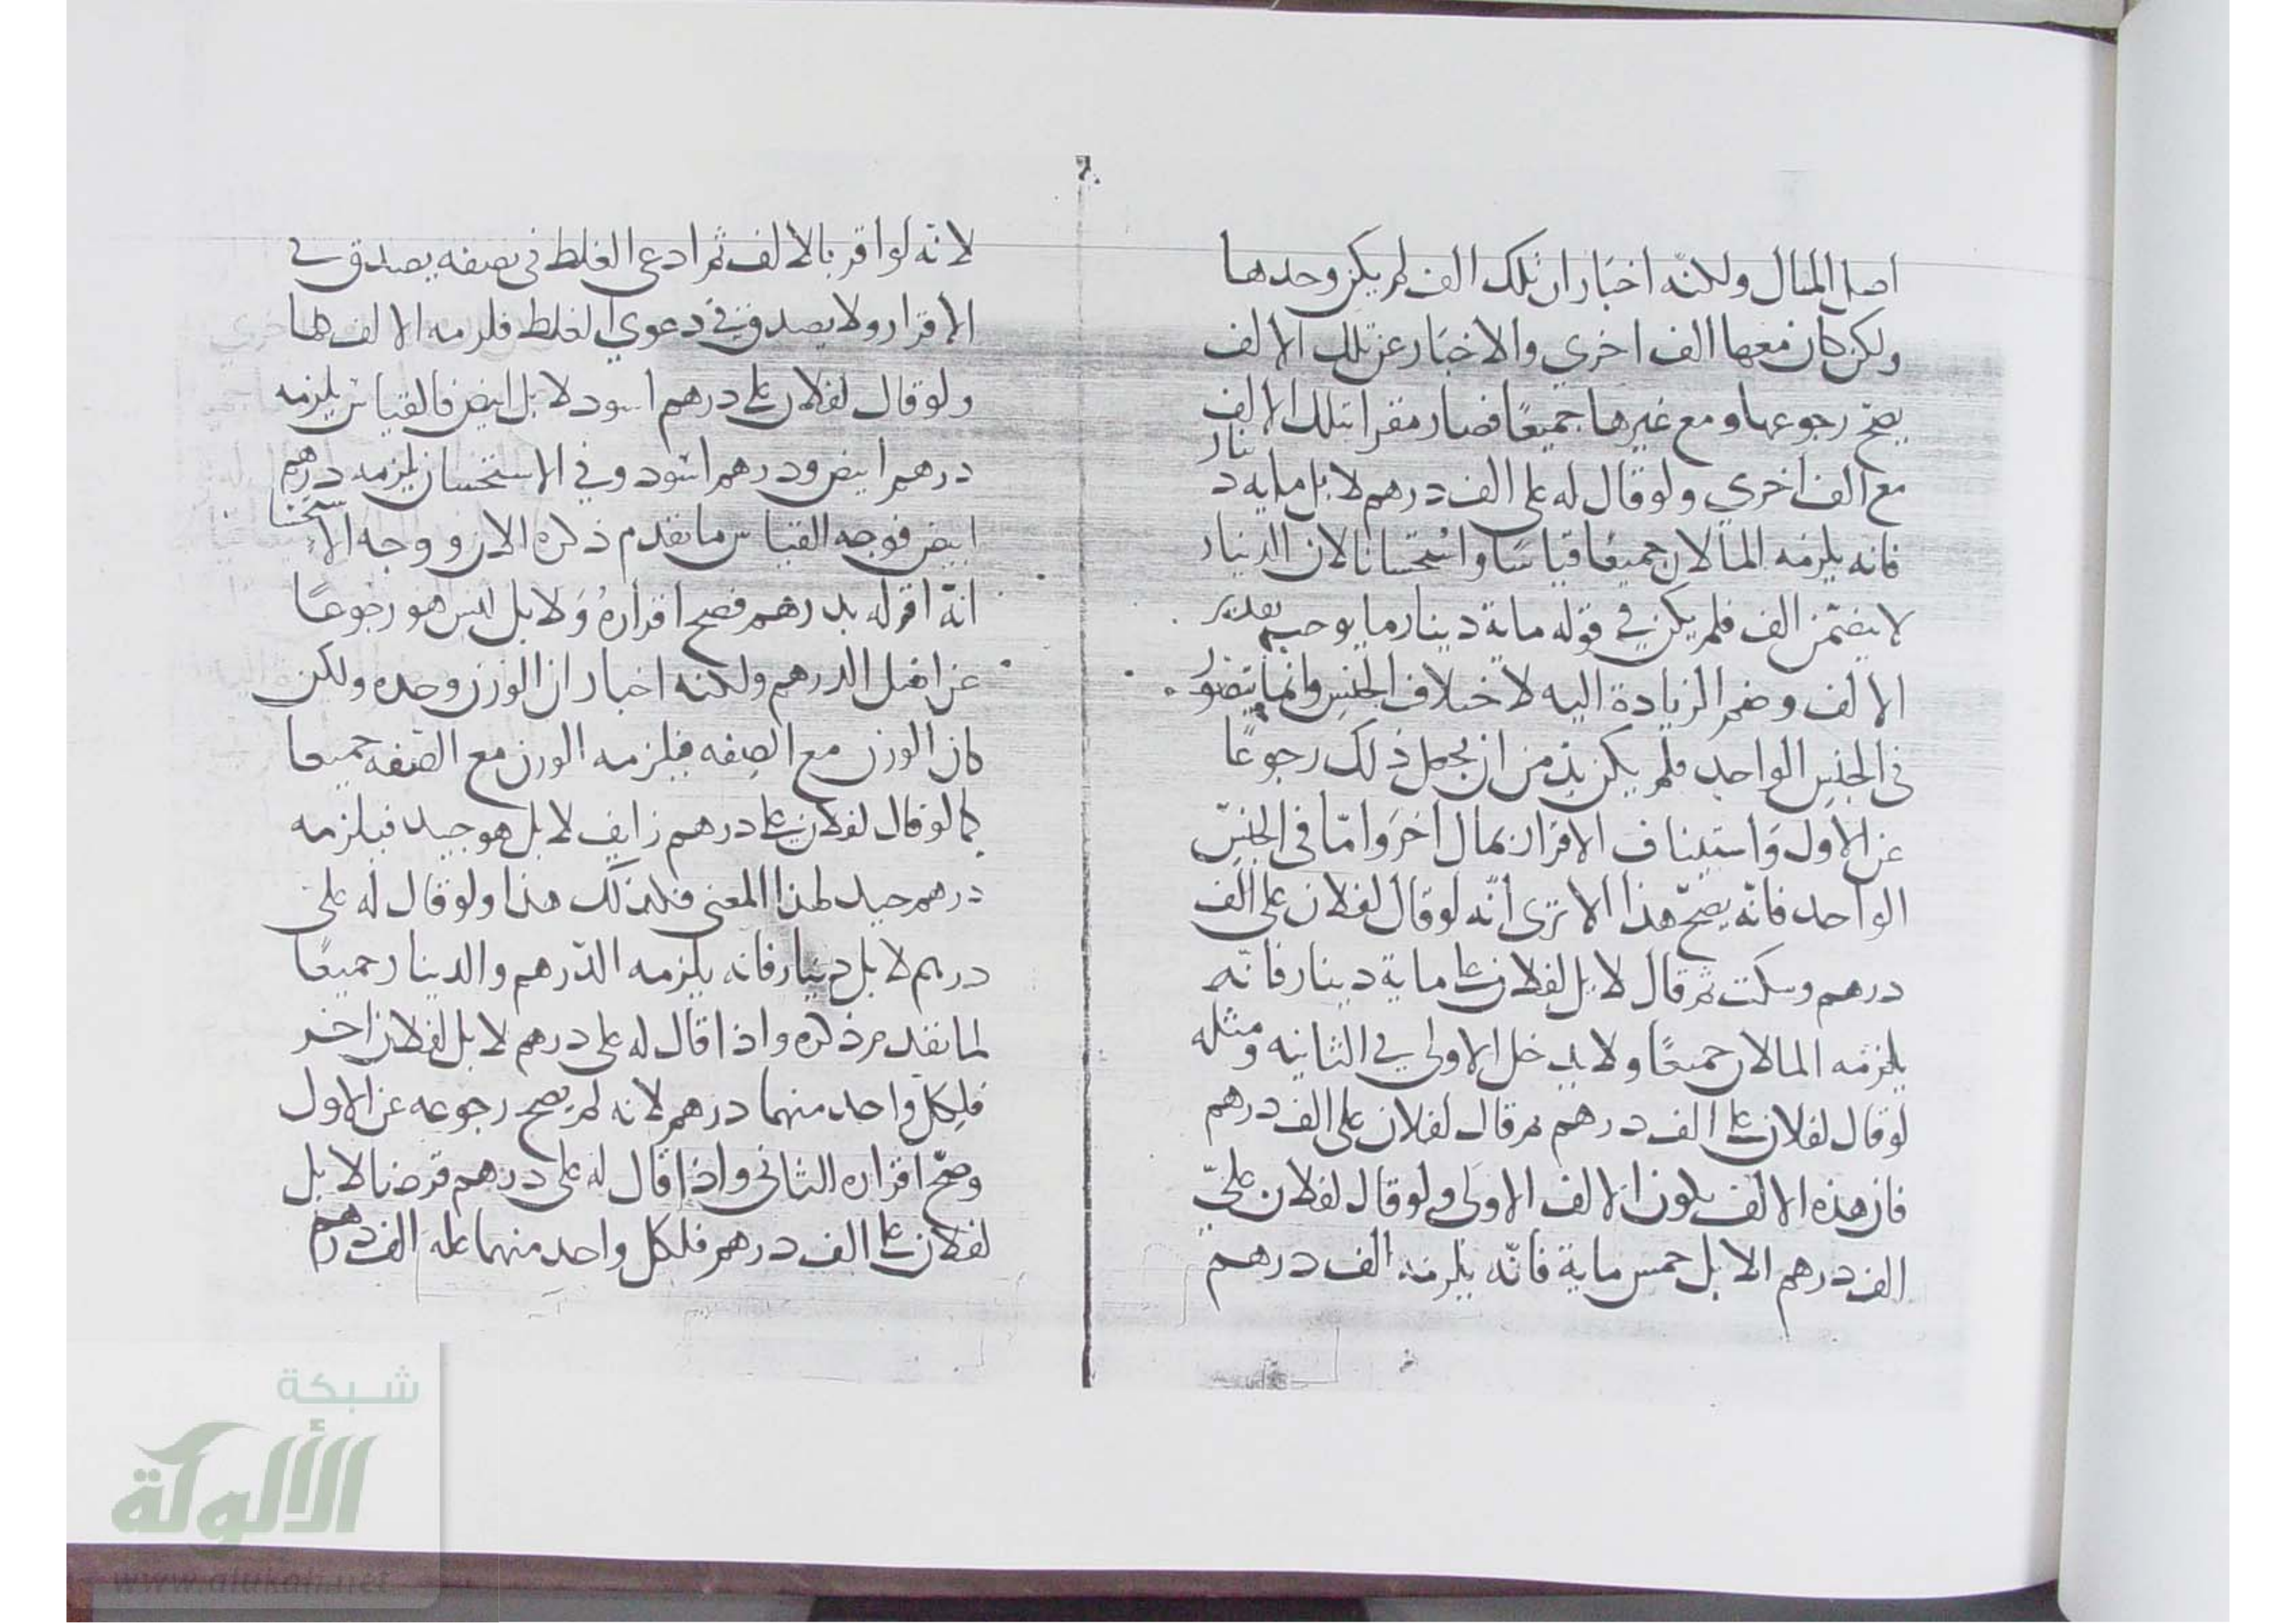 اصل المال ولكنه اخبار ان تلك الف لم يكن وحدها
ولكن كان معها الف اخرى والاخبار عن تلك الالف
يصح رجوعها ومع غيرها جميعًا فصار مقرا بتلك الالف
مع الف اخرى ولو قال له على الف درهم لا بل مايه دينار
فانه يلزمه المالان جميعا قياسا واستحسانا لان الدينار
لا يتضمن الف فلم يكن في قوله ماية دينار ما يوجب تقدير
الالف وضم الزيادة اليه لاختلاف الجنس وانما يتصور
فى الجنس الواحد فلم يكن بد من ان يجعل ذلك رجوعًا
عن الاول واستيناف الاقرار بمال اخر واما فى الجنس
الواحد فانه يصح هذا الا ترى انه لو قال لفلان على الف
درهم وسكت ثم قال لا بل لفلان على ماية دينار فانه
يلزمه المالان جميعًا ولا يدخل الاولى في الثانيه ومثله
لو قال لفلان على الف درهم ثم قال لفلان على الف درهم
فان هذه الالف يكون الالف الاولى ولو قال لفلان علىّ
الف درهم الا بل خمس ماية فانه يلزمه الف درهم
لانه لو اقر بالالف ثم ادعى الغلط فى نصفه يصدق في
الاقرار ولا يصدق في دعوى الغلط فلزمه الالف كما
ولو قال لفلان على درهم اسود لا بل ابيض فالقياس يلزمه
درهم ابيض ودرهم اسود وفي الاستحسان يلزمه درهم
ابيض فوجه القياس ما تقدم ذكره الان ووجه الاستحسا
انه اقر له بدرهم فصح اقراره ولا بل ليس هو رجوعًا
عن اصل الدرهم ولكنه اخبار ان الوزن وحده ولكن
كان الوزن مع الصفه فيلزمه الوزن مع الصفه جميعا
كما لو قال لفلان على درهم زايف لا بل هو جيد فيلزمه
درهم جيد لهذا المعنى فكذلك هذا ولو قال له على
درهم لا بل دينار فانه يلزمه الدرهم والدينار جميعًا
لما تقدم ذكره واذا قال له على درهم لا بل لفلان اخر
فلكل واحد منهما درهم لانه لم يصح رجوعه عن الاول
وصح اقراره الثانى واذا قال له على درهم قرضا لا بل
لفلان على الف درهم فلكل واحد منهما عليه الف درهم
شبكة
الألوكة
www.alukah.net